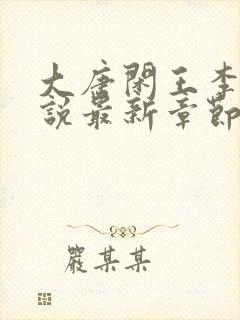 大唐閑王李
說最新章節
嚴某某